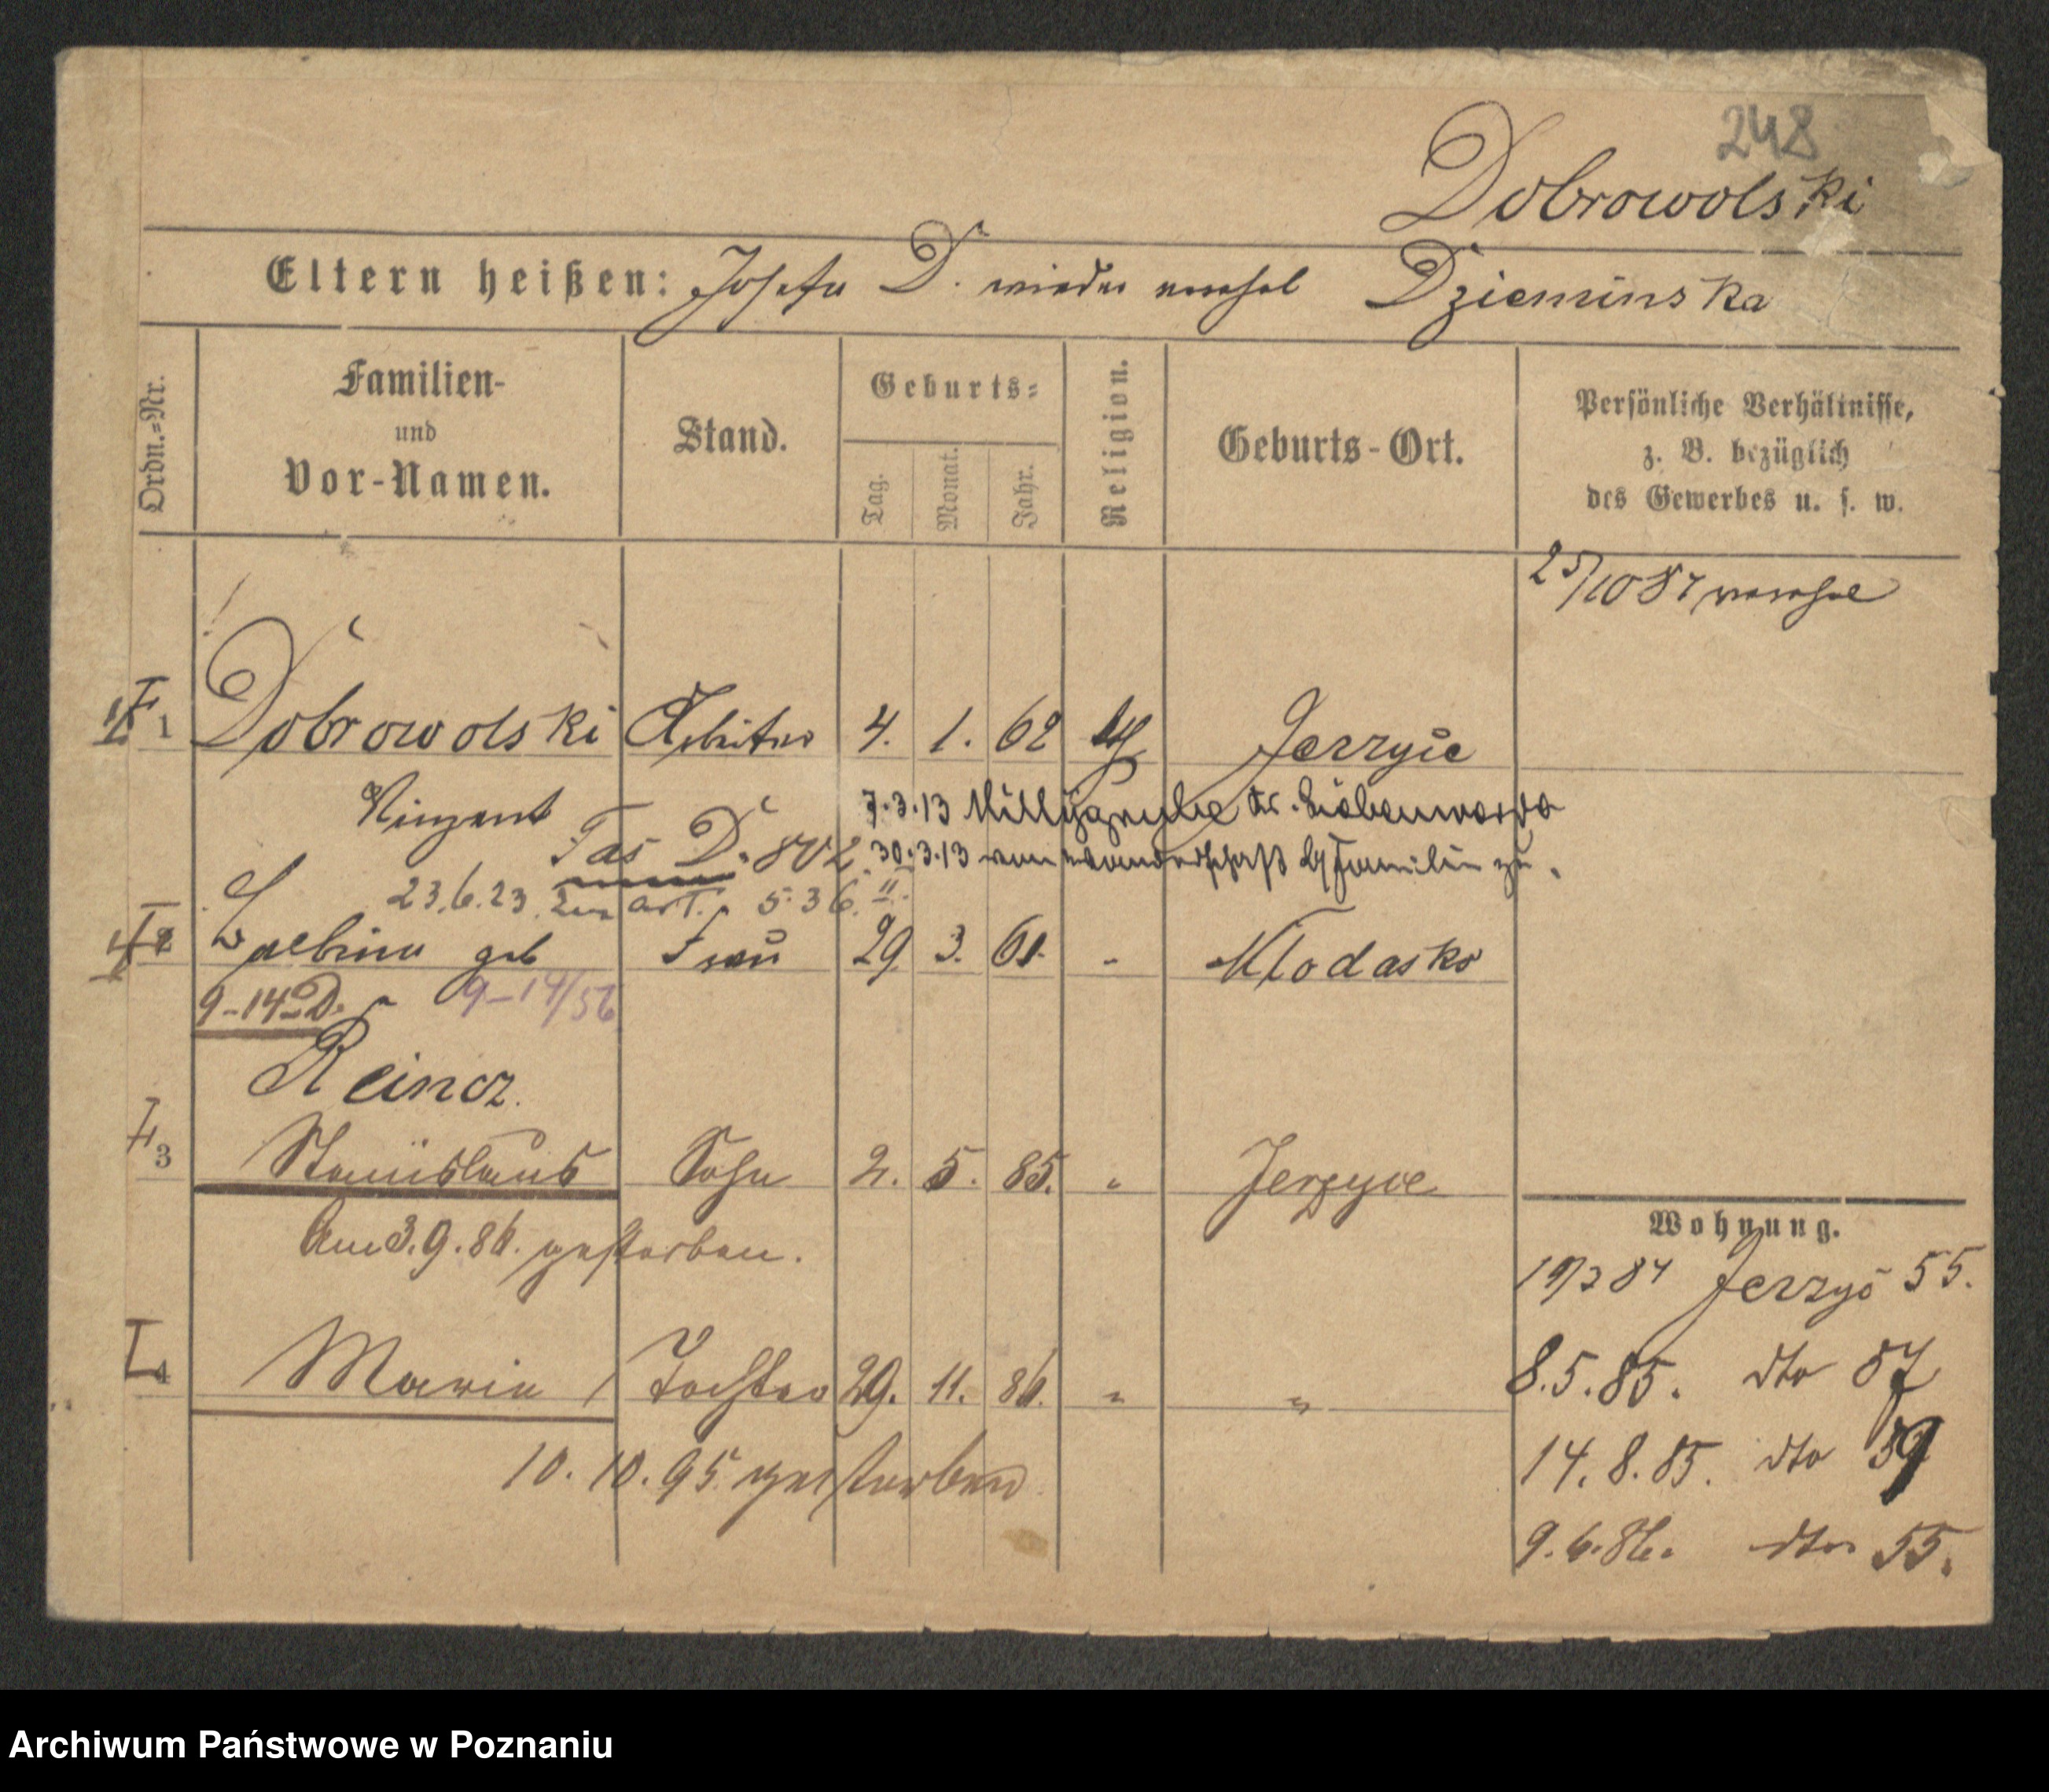 248
Dobrowolski
Eltern heißen: Josefa D. wieder verehel Dzieminska
Ordn.=Nr.
Familien-
und
Vor-Namen.
Stand.
Geburts=
Tag.
Monat.
Jahr.
Religion.
Geburts-Ort.
Persönliche Verhältnisse,
z. B. bezüglich
des Gewerbes u. s. w.
25/10 87 verehel
1 Dobrowolski Arbeiter 4. 1. 62 Jerzyce
Vinzent
7.3.13 Kr. Liebenwerda
D. 802. 30.3.13 von Wanderschaft Familie zu.
23.6.23. 5.36. II.
2 geb Frau 29. 3. 61. " Klodasko
9-14 D. 9-14/56
Reincz.
3 Stanislaus Sohn 2. 5. 85. " Jerzyce
Am 3.9.86. gestorben.
Wohnung.
19/3 84 Jerzyc 55.
4 Maria Tochter 29. 11. 86. " "
8.5.85. dto 57
10.10.95. gestorben
14.8.85. dto 59
9.6.86. dto 55.
Archiwum Państwowe w Poznaniu